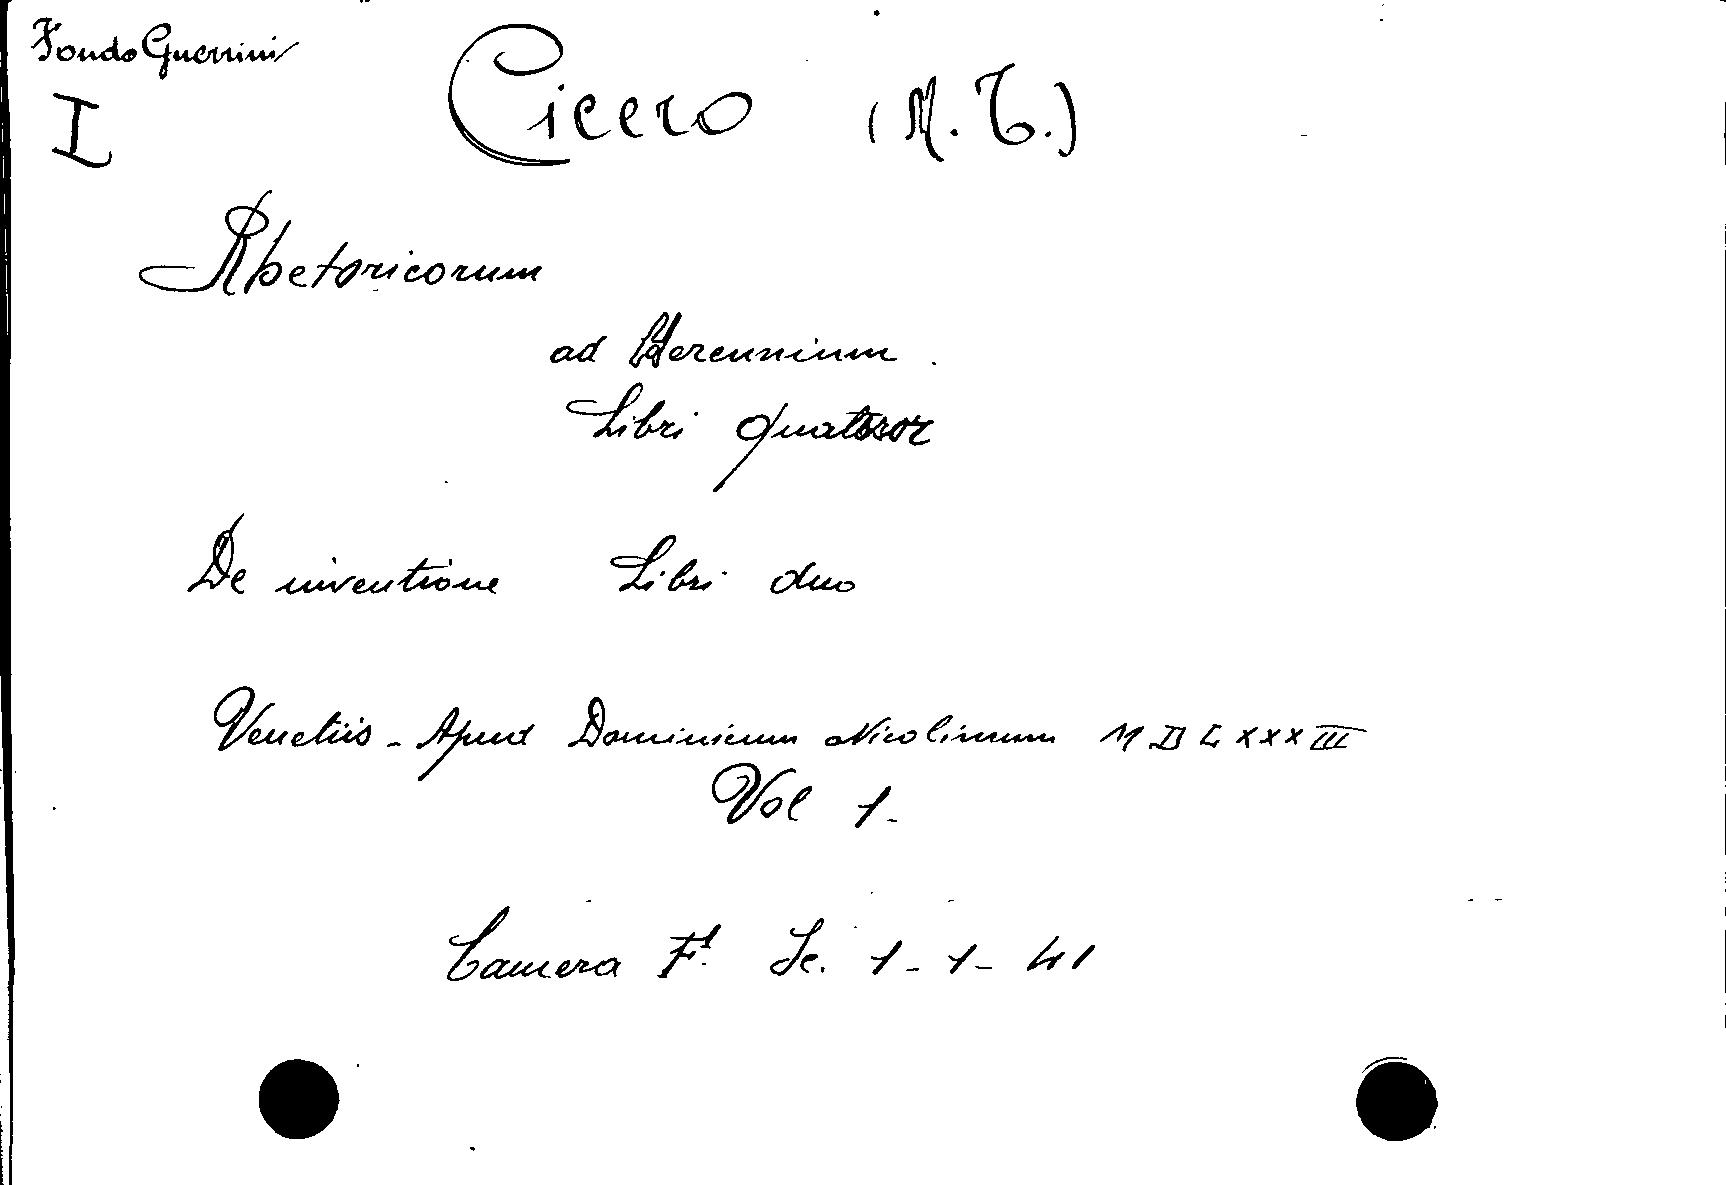 Fondo Guerrini
I
Cicero (M. T.)
Rhetoricorum
ad Herennium.
Libri quatuor
De inventione Libri duo
Venetiis - Apud Dominicum Nicolinum MDLXXXIII
Vol 1-
Camera F! Sc. 1-1-41